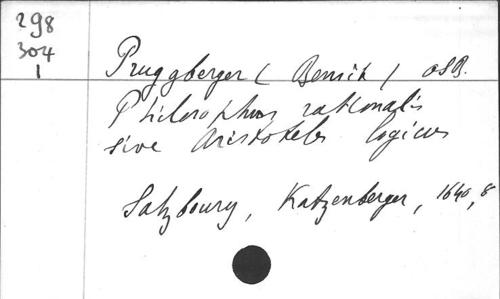 298
304
1
Pruggberger ( Bernih ) OSB.
Philosophus rationalis
sive Aristoteles logicus
Salzbourg, Katzenberger, 1640, 8